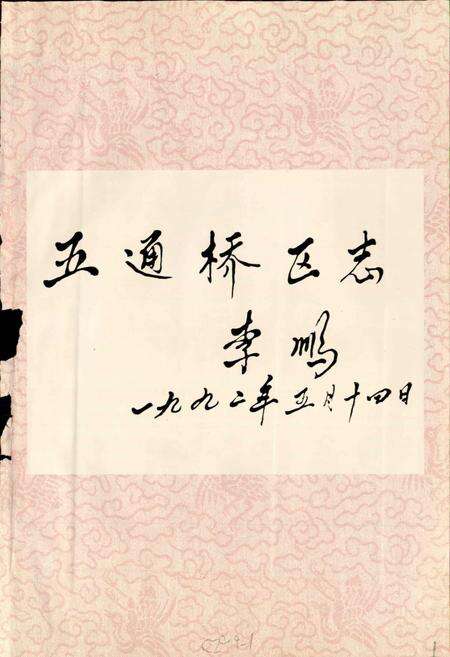 五通桥区志
李鹏
一九九二年五月十四日